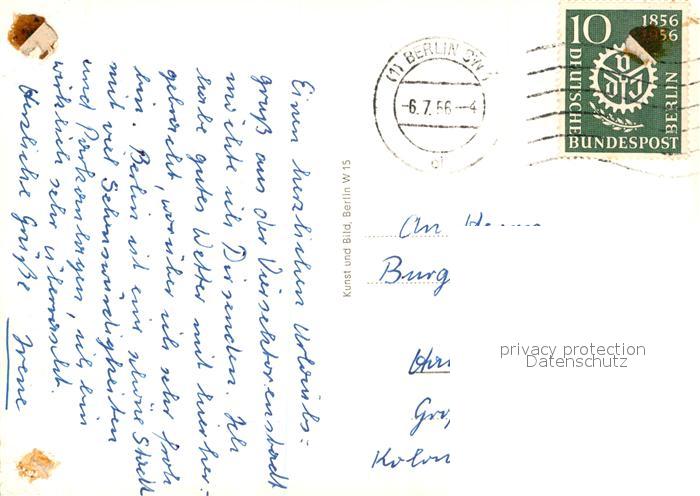 Einen herzlichen Urlaubs-
gruß aus der Viersektorenstadt
möchte ich Dir senden. Ich
habe gutes Wetter mit hierher-
gebracht, worüber ich sehr froh
bin. Berlin ist eine schöne Stadt
mit viel Sehenswürdigkeiten
und Parkanlagen, ich bin
wirklich sehr überrascht.
Herzliche Grüße Irene
Kunst und Bild, Berlin W 15
(1) BERLIN SW
-6.7.56--4
10
1856
1956
VDI
DEUTSCHE
BUNDESPOST
BERLIN
An
Burg
privacy protection
Datenschutz
Gro
Kolon